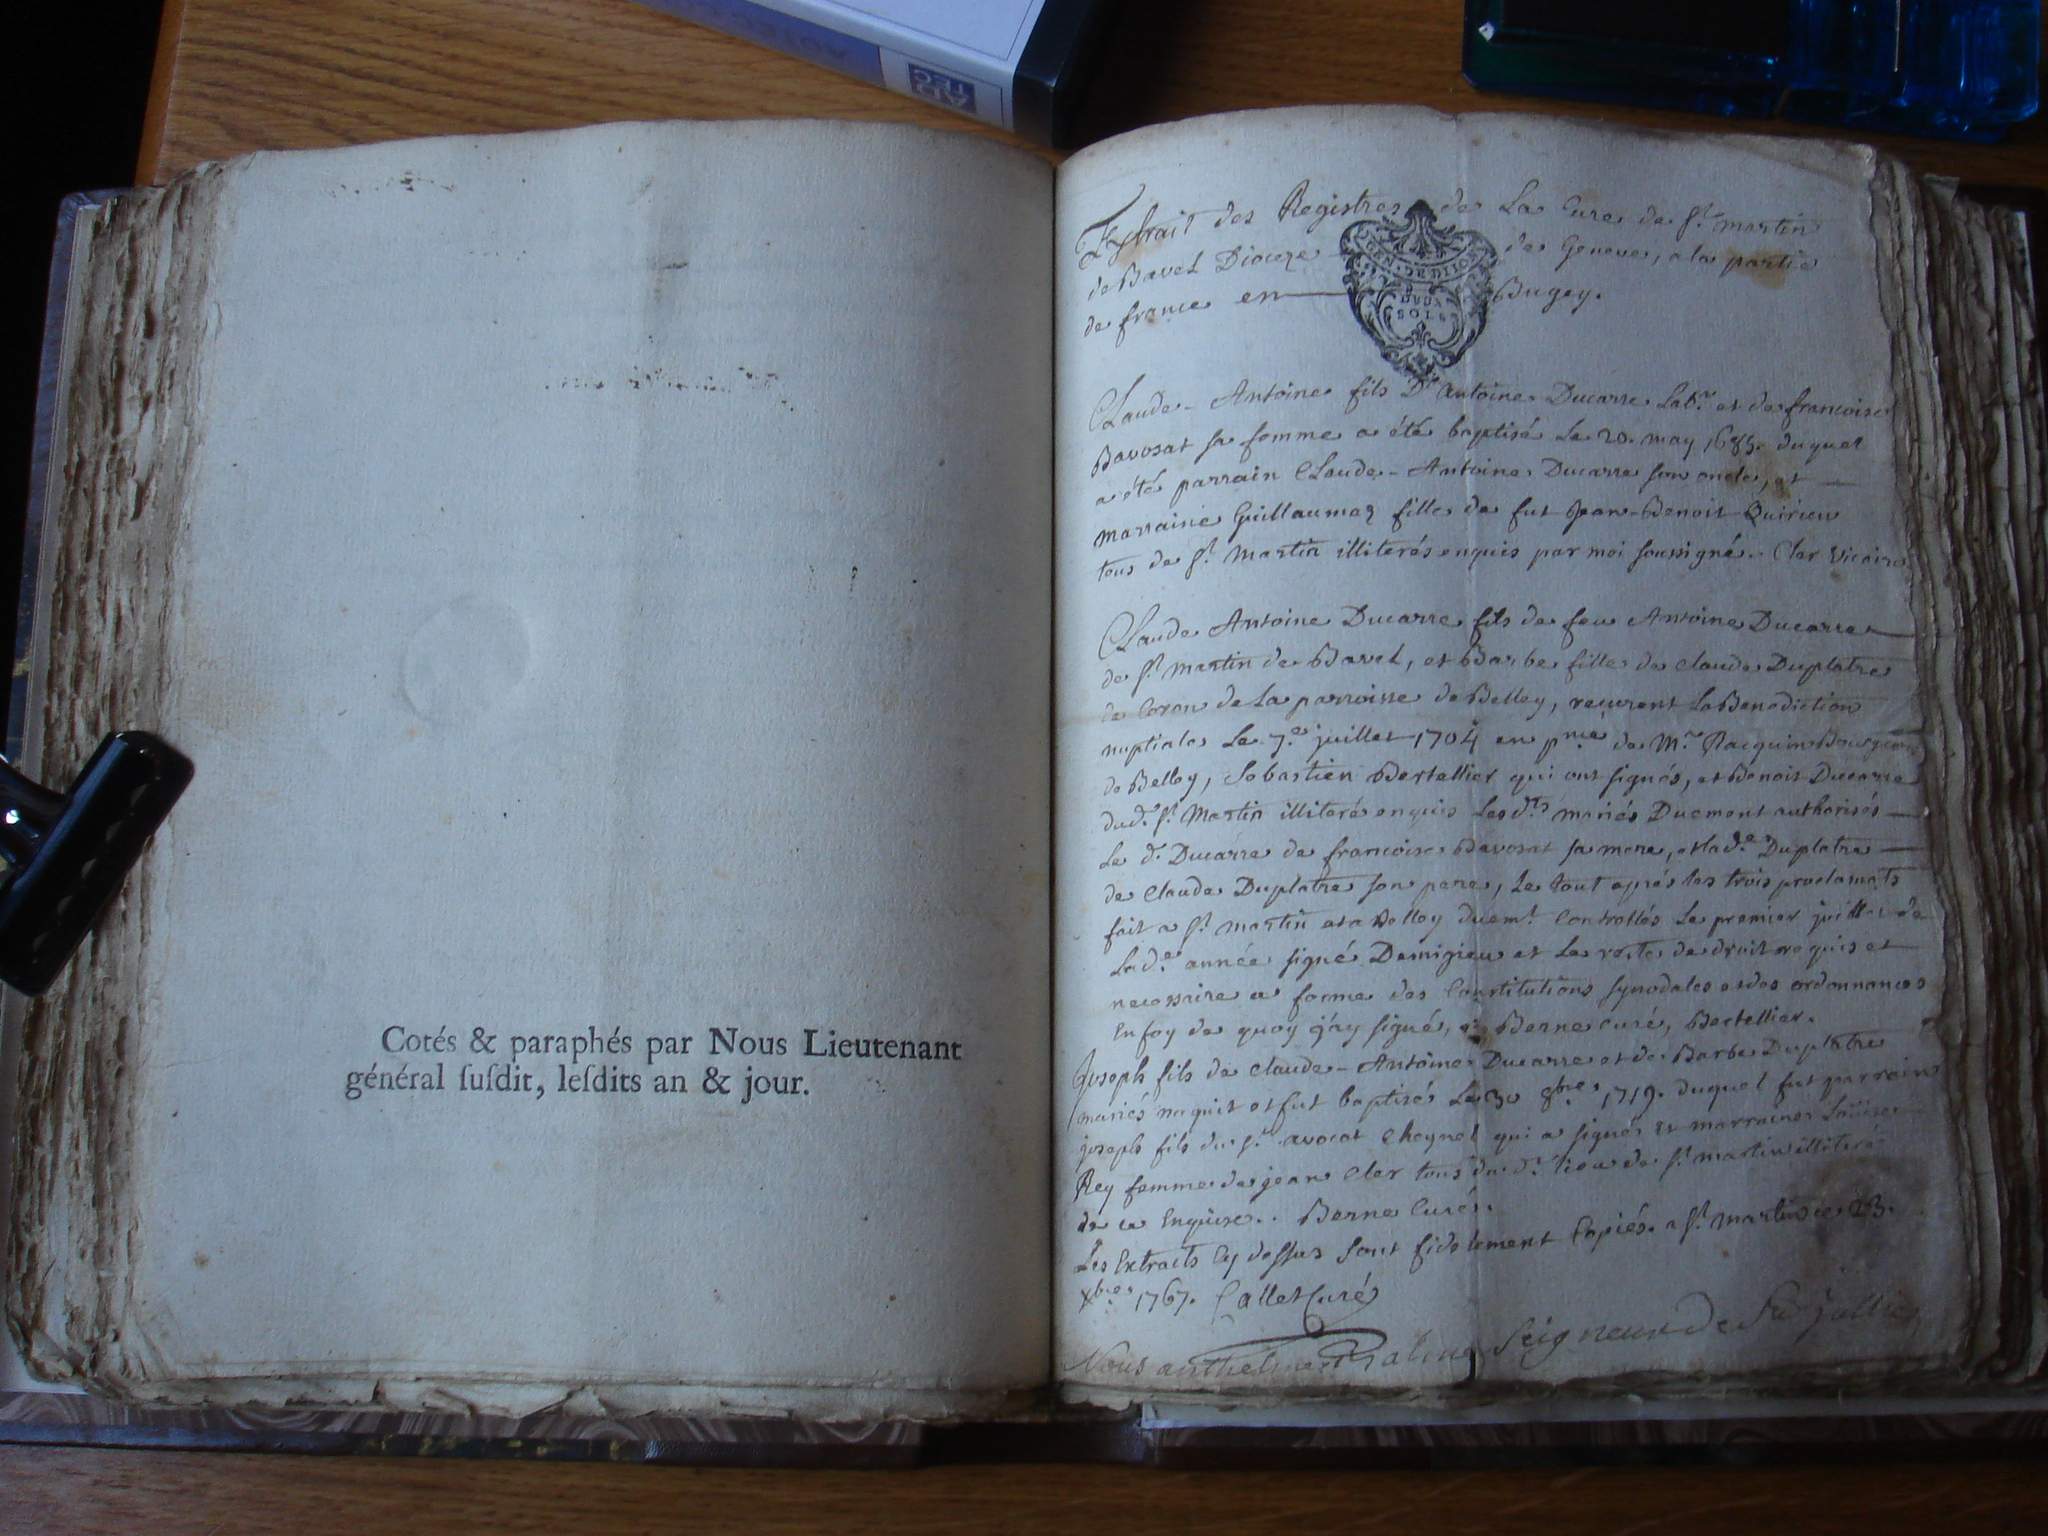 AD
TEC
Cotés & paraphés par Nous Lieutenant
général ſuſdit, leſdits an & jour.
GEN · DE DIJON
DEUX
SOLS
Extrait des Registres de La Cure de St. martin
de Bavel Dioceze de Geneve, a la partie
de france en Bugey.
Claude-Antoine fils D'antoine Ducarre Labr. et de francoise
Bavosat sa femme a été baptisé Le 20. may 1685. duquel
a été parrain Claude-Antoine Ducarre son oncle, et
marraine Guillaumaz fille de fut Jean-Benoit Quirieu
tous de St. Martin illiterés enquis par moi soussigné. Cler Vicaire
Claude Antoine Ducarre fils de feu Antoine Ducarre
de St. martin de Bavel, et Barbe fille de Claude Duplatre
de Coron de La parroisse de Belley, reçurent La Benediction
nuptiale Le 7e. juillet 1704 en pnce de Mr. Racquin Bourgeois
de Belley, Sebastien Bertellier qui ont signés, et Benoit Ducarre
dud. St. Martin illiteré enquis Les dts mariés Duement authorisés
Le d. Ducarre de francoise Bavosat sa mere, et lad.e Duplatre
de Claude Duplatre son pere, Le tout aprés les trois proclamats
fait a St. martin et a Belley duemt. Controllés Le premier juillet de
Lad.e année signé Demigieu et Le reste de droit requis et
necessaire a forme des Constitutions synodales et des ordonnances
En foy de quoy j'ay signé, Berne Curé, Bertellier.
Joseph fils de Claude-Antoine Ducarre et de Barbe Duplatre
mariés naquit et fut baptisé Le 30 8bre 1719. duquel fut parrain
joseph fils du Sr. avocat Cheynel qui a signé Et marraine Louise
Rey femme de jean Cler tous du d. lieu de St. martin illiteré
de ce Enquise.. Berne Curé.
Les Extraits Cy dessus sont fidelement Copiés. a St. martin ce 23.
xbre 1767. Callet Curé
Nous anthelme Seigneur de